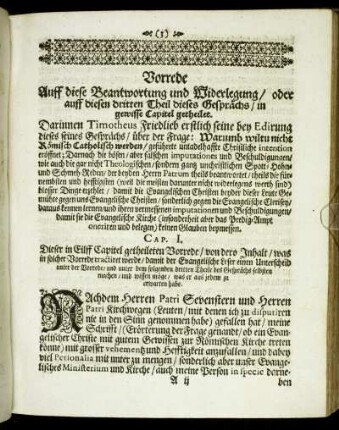 (3)
Vorrede
Auff diese Beantwortung und Widerlegung / oder
auff diesen dritten Theil dieses Gesprächs / in
gewisse Capitel getheilet.
Darinnen Timotheus Friedlieb erstlich seine bey Edirung
dieses seines Gesprächs / über der Frage: Warumb wiltu nicht
Römisch Catholisch werden / geführete untadelhaffte Christliche intention
eröffnet; Darnach die bösen / aber falschen imputationes und Beschuldigungen /
wie auch die gar nicht Theologischen / sondern gantz unchristlichen Spott- Hohn-
und Schmeh-Reden / der beyden Herrn Patrum theils beantwortet / theils die für-
nembsten und hefftigsten (weil die meisten darunter nicht widerlegens werth sind)
blosser Dinge erzehlet / damit die Evangelischen Christen beyder dieser Leute Ge-
müthe gegen uns Evangelische Christen / sonderlich gegen die Evangelische Clerisey /
daraus kennen lernen und ihren vermessenen imputationen und Beschuldigungen /
damit sie die Evangelische Kirche / insonderheit aber das Predig-Ampt
onoriren und belegen / keinen Glauben beymessen.
CAP. I.
Dieser in Eilff Capitel getheileten Vorrede / von dero Inhalt / was
in solcher Vorrede tractiret werde / damit der Evangelische Leser einen Unterscheid
unter der Vorrede / und unter dem folgenden dritten Theile des Gesprächs selbsten
machen / und wissen möge / was er aus jedem zu
erwarten habe.
NAchdem Herren Patri Sevenstern und Herren
Patri Kirchwegen (Leuten / mit denen ich zu disputiren
nie in den Sinn genommen habe) gefallen hat / meine
Schrifft / (Erörterung der Frage genandt / ob ein Evan-
gelischer Christe mit gutem Gewissen zur Römischen Kirche treten
könne / mit grosser vehementz und Hefftigkeit anzufallen / und dabey
viel Personalia mit unter zu mengen / sonderlich aber unser Evange-
lisches Ministerium und Kirche / auch meine Person in specie derne-
A ij
ben